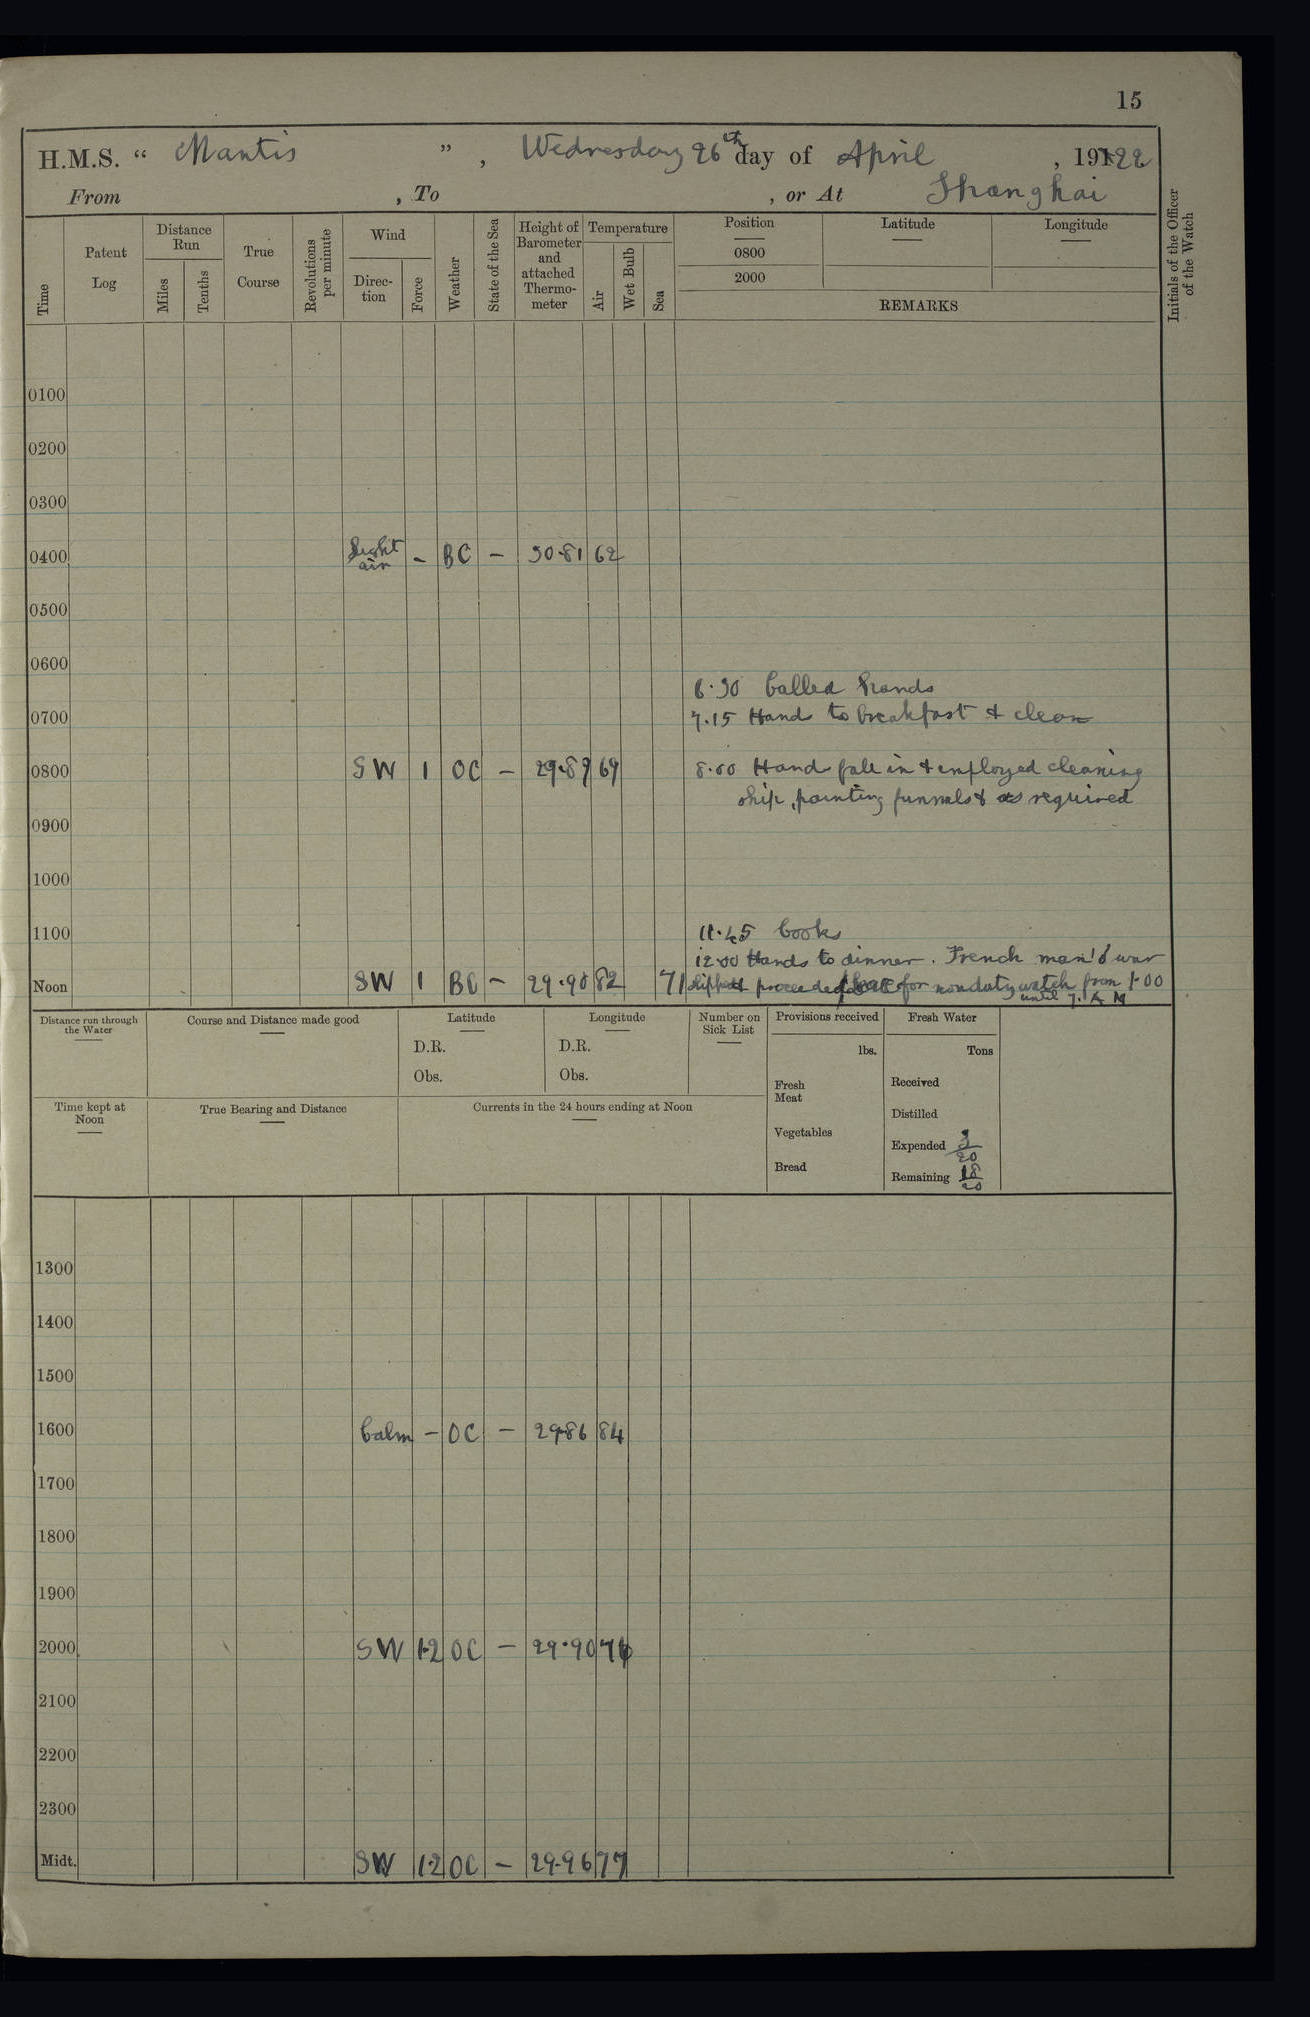 15
H.M.S. “ Mantis ” , Wednesday 26th day of April , 1922
From , To , or At Shanghai
Time
Patent Log
Distance Run
Miles
Tenths
True Course
Revolutions per minute
Wind
Direction
Force
Weather
State of the Sea
Height of Barometer and attached Thermometer
Temperature
Air
Wet Bulb
Sea
Position
0800
2000
Latitude
Longitude
REMARKS
Initials of the Officer of the Watch
0100
0200
0300
0400 Light air - BC - 30.81 62
0500
0600
6.30 Called hands
0700 7.15 Hands to breakfast & clean
0800 SW 1 OC - 29.89 69 8.00 Hands fall in & employed cleaning
ship, painting funnels & as required
0900
1000
1100 11.45 Cooks
12.00 Hands to dinner. French man o' war
Noon SW 1 BC - 29.90 82 71 proceeded leave for nonduty watch from 1.00
until 7. A M
Distance run through the Water
Course and Distance made good
Latitude
D.R.
Obs.
Longitude
D.R.
Obs.
Number on Sick List
Provisions received
lbs.
Fresh Meat
Vegetables
Bread
Fresh Water
Tons
Received
Distilled
Expended 3/20
Remaining 18/20
Time kept at Noon
True Bearing and Distance
Currents in the 24 hours ending at Noon
1300
1400
1500
1600 Calm - OC - 29.86 84
1700
1800
1900
2000 SW 1-2 OC - 29.90 76
2100
2200
2300
Midt. SW 1-2 OC - 29.96 77